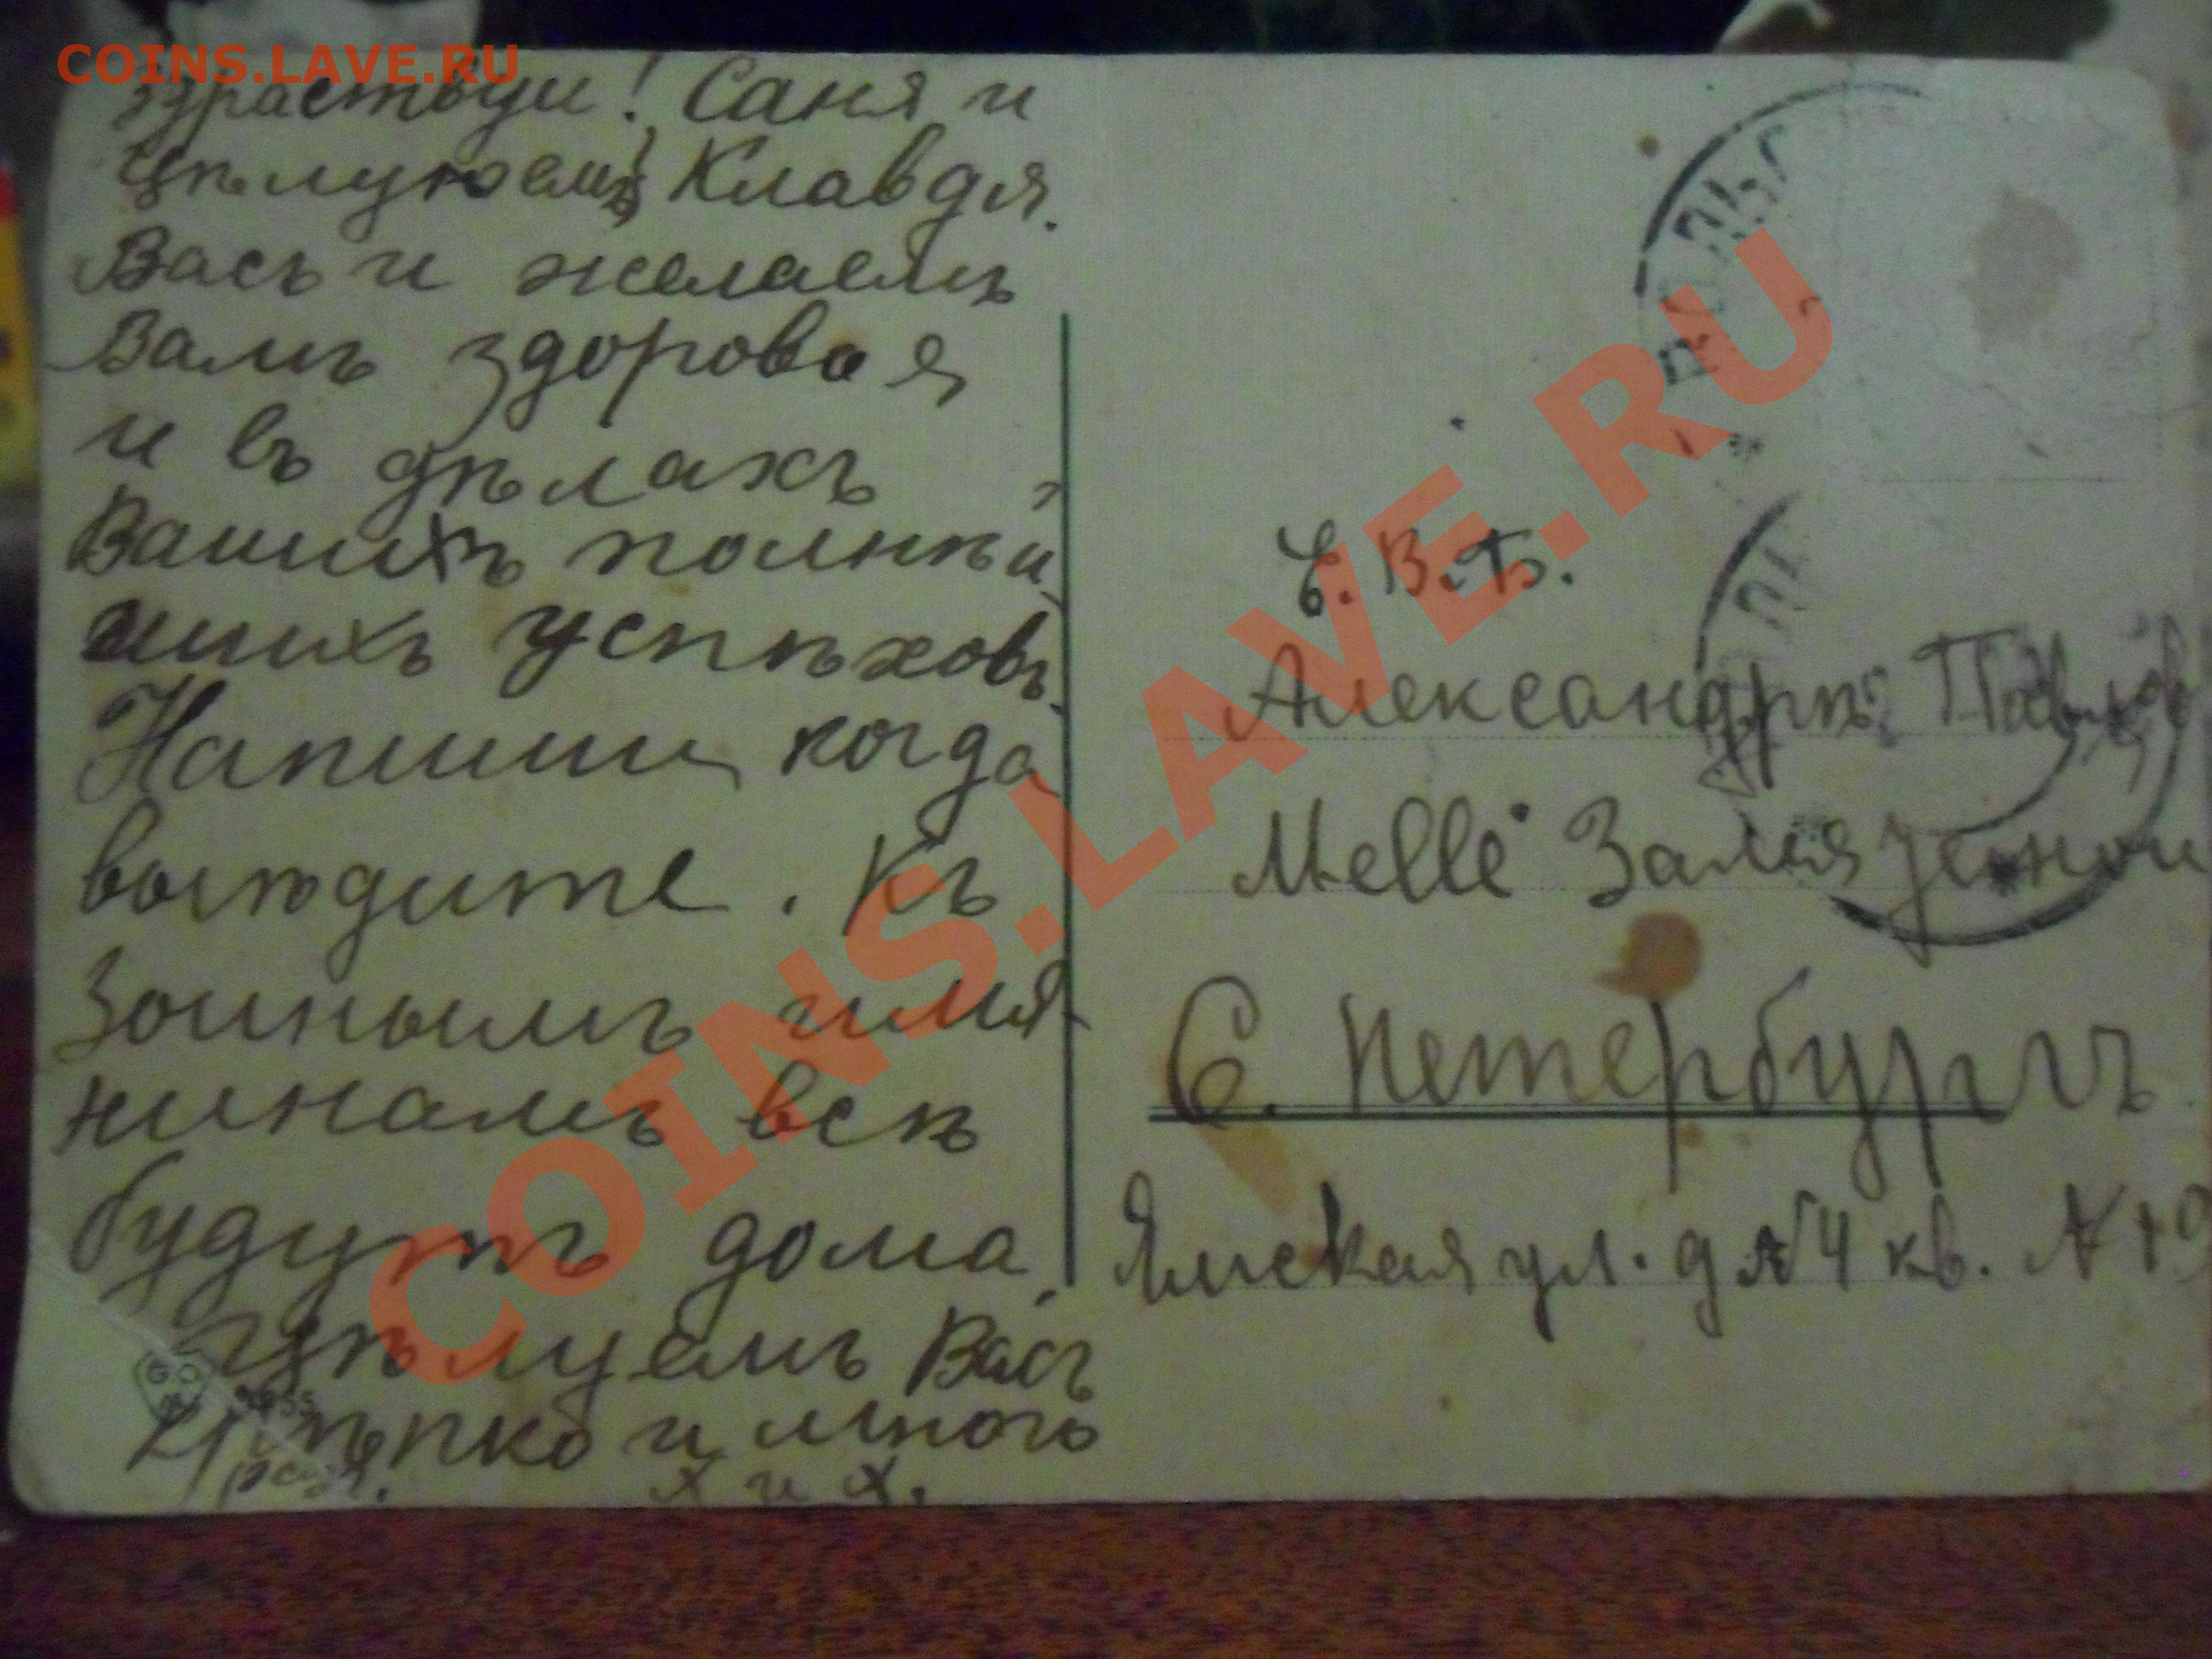 COINS.LAVE.RU
здраствуи! Саня и
Цѣлуюемъ Клавдя.
Васъ и желаемъ
Вамъ здоровоя
и въ дѣлахъ
Вашихъ полнѣй
шихъ успѣховъ.
Напиши когда
выѣдите. Къ
Зоинымъ имя
нинамъ всѣ
будутъ дома.
Цѣлуемъ Васъ
Крѣпко и много
разъ. х и х.
Е. В. Б.
Александрѣ Павлов
Melle
С. Петербургъ
Ямская ул. д № 4 кв. № 19
COINS.LAVE.RU